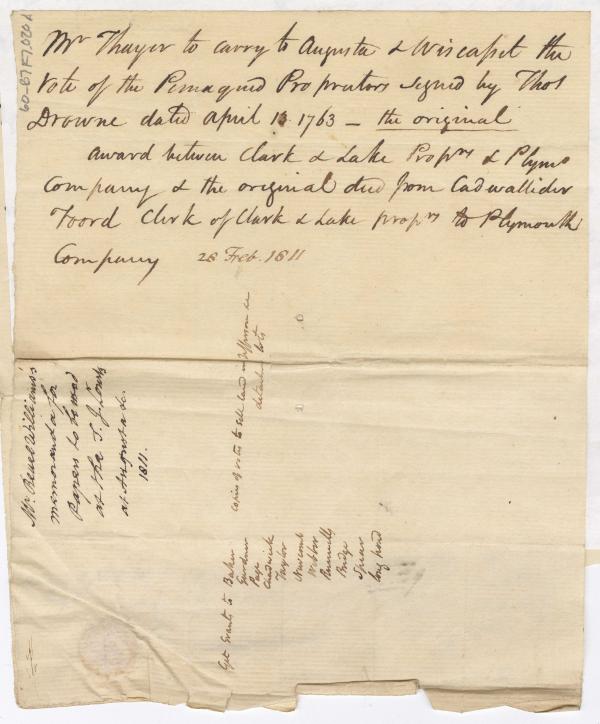 Mr Thayer to carry to Augusta & Wiscasset the
Vote of the Pemaquid Propriators signed by Thos
Drowne dated April 13 1763 – the original
award between Clark & Lake Proprs & Plymo
Company & the original deed from Cadwallider
Foord Clerk of Clark & Lake proprs to Plymouth
Company 28 Feb. 1811
60-87 F7,020d
Mr. Reuel Williams's
memoranda for
Papers to be used
at the S. J. Courts
at Augusta &c.
1811.
Copies of votes to sell land in Jefferson &c
Get Grants to Baker
Gardner
Page
Chadwick
Taylor
Newcomb
Webber
Runnells
Bridge
Spear
long pond